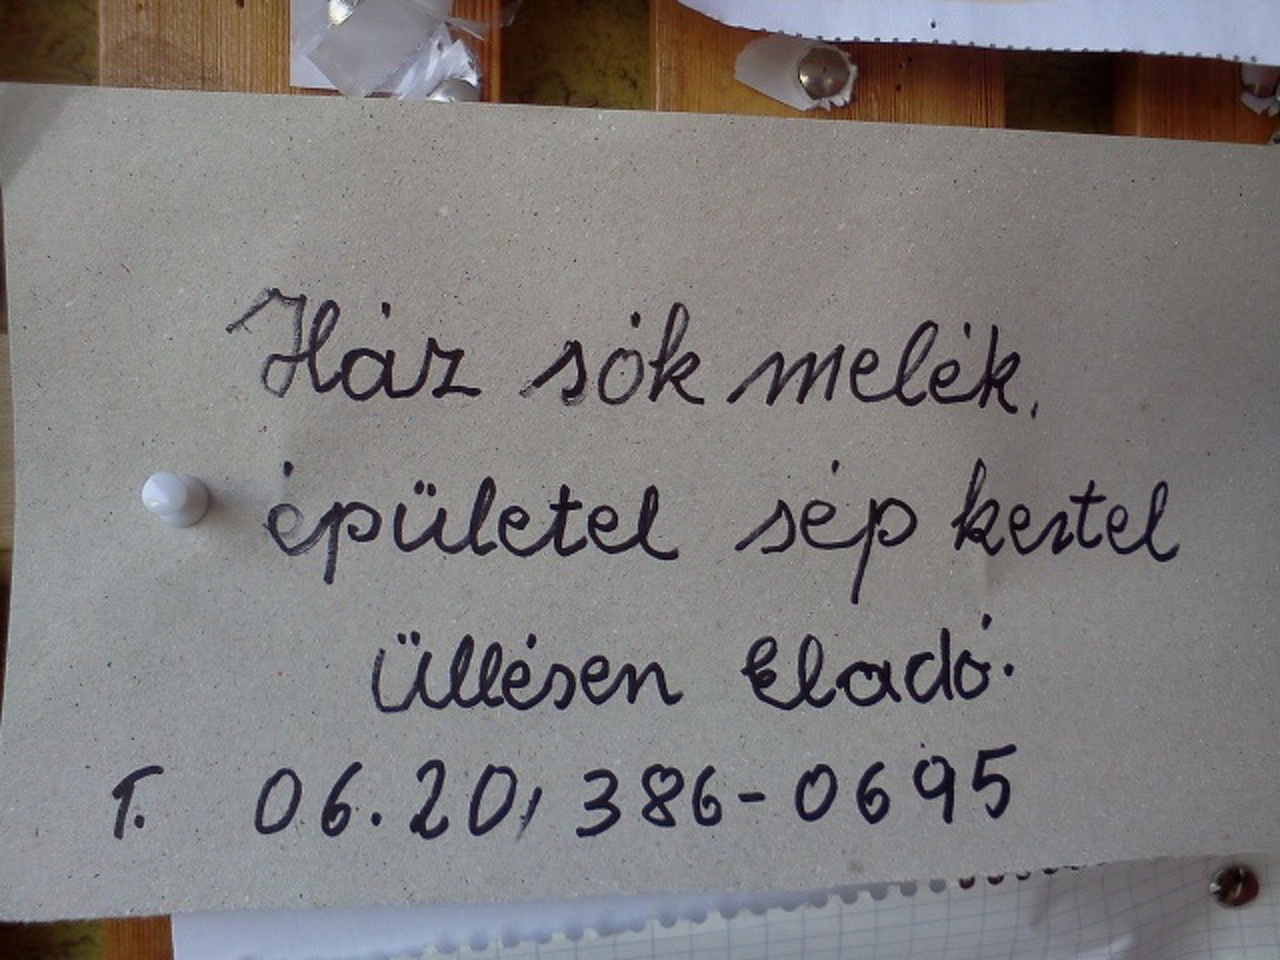 Ház sók melék.
épületel sép kertel
Üllésen Eladó.
T. 06.20, 386-0695